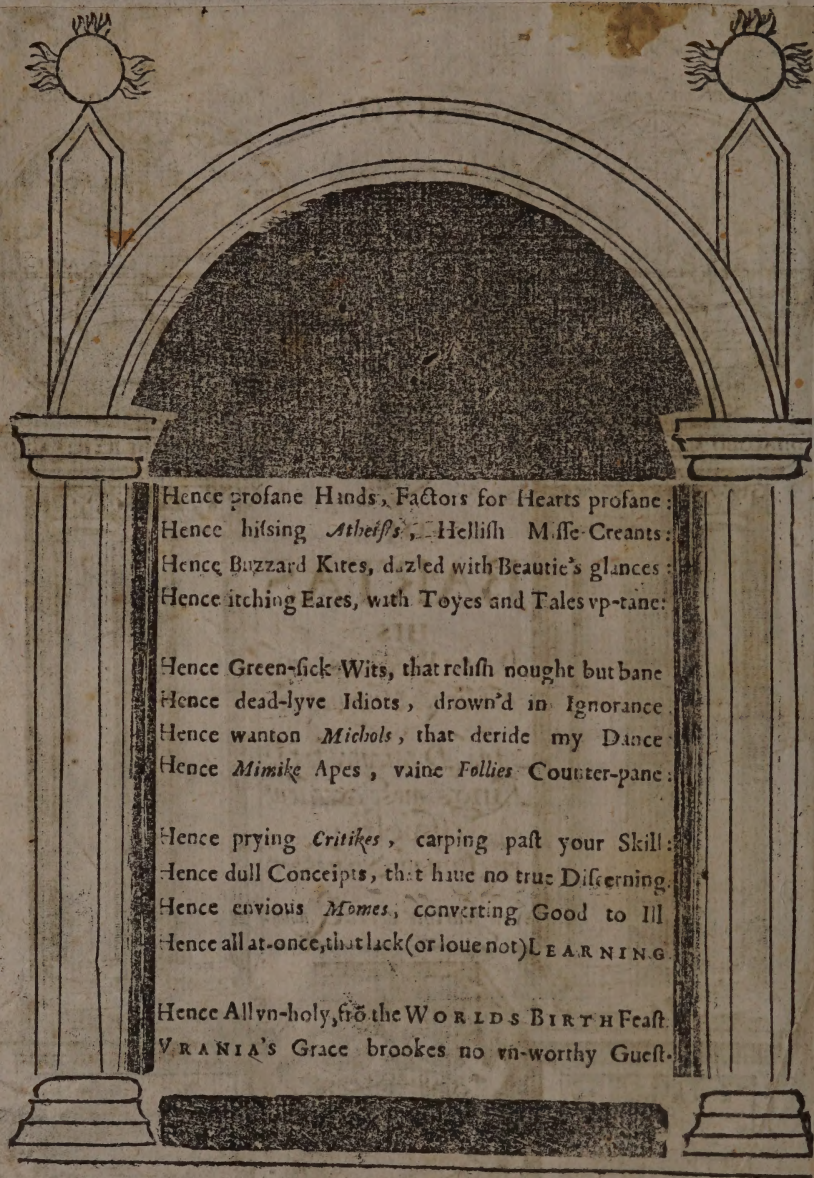 Hence profane Hands, Factors for Hearts profane:
Hence hiſsing Atheiſts, Helliſh Miſſe-Creants:
Hence Buzzard Kites, dazled with Beautie's glances:
Hence itching Eares, with Toyes and Tales vp-tane:
Hence Green-ſick Wits, that reliſh nought but bane
Hence dead-lyve Idiots, drown'd in Ignorance.
Hence wanton Michols, that deride my Dance
Hence Mimike Apes, vaine Follies Counter-pane:
Hence prying Critikes, carping paſt your Skill:
Hence dull Conceipts, that haue no true Diſcerning.
Hence envious Momes, converting Good to Ill
Hence all at-once, that lack (or loue not) LEARNING.
Hence All vn-holy, frõ the WORLDS BIRTH Feaſt.
VRANIA'S Grace brookes no vn-worthy Gueſt.